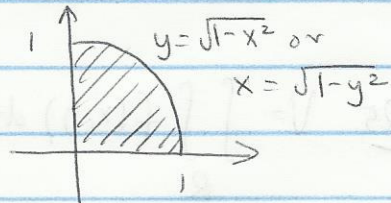 1 y = √1-x² or
x = √1-y²
1